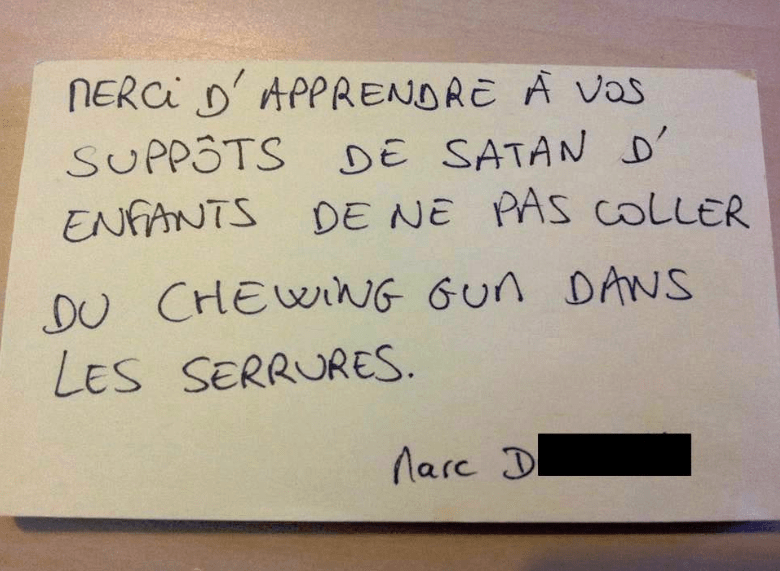 MERCi D' APPRENDRE À VOS
SUPPÔTS DE SATAN D'
ENFANTS DE NE PAS COLLER
DU CHEWING GUM DANS
LES SERRURES.
Marc D